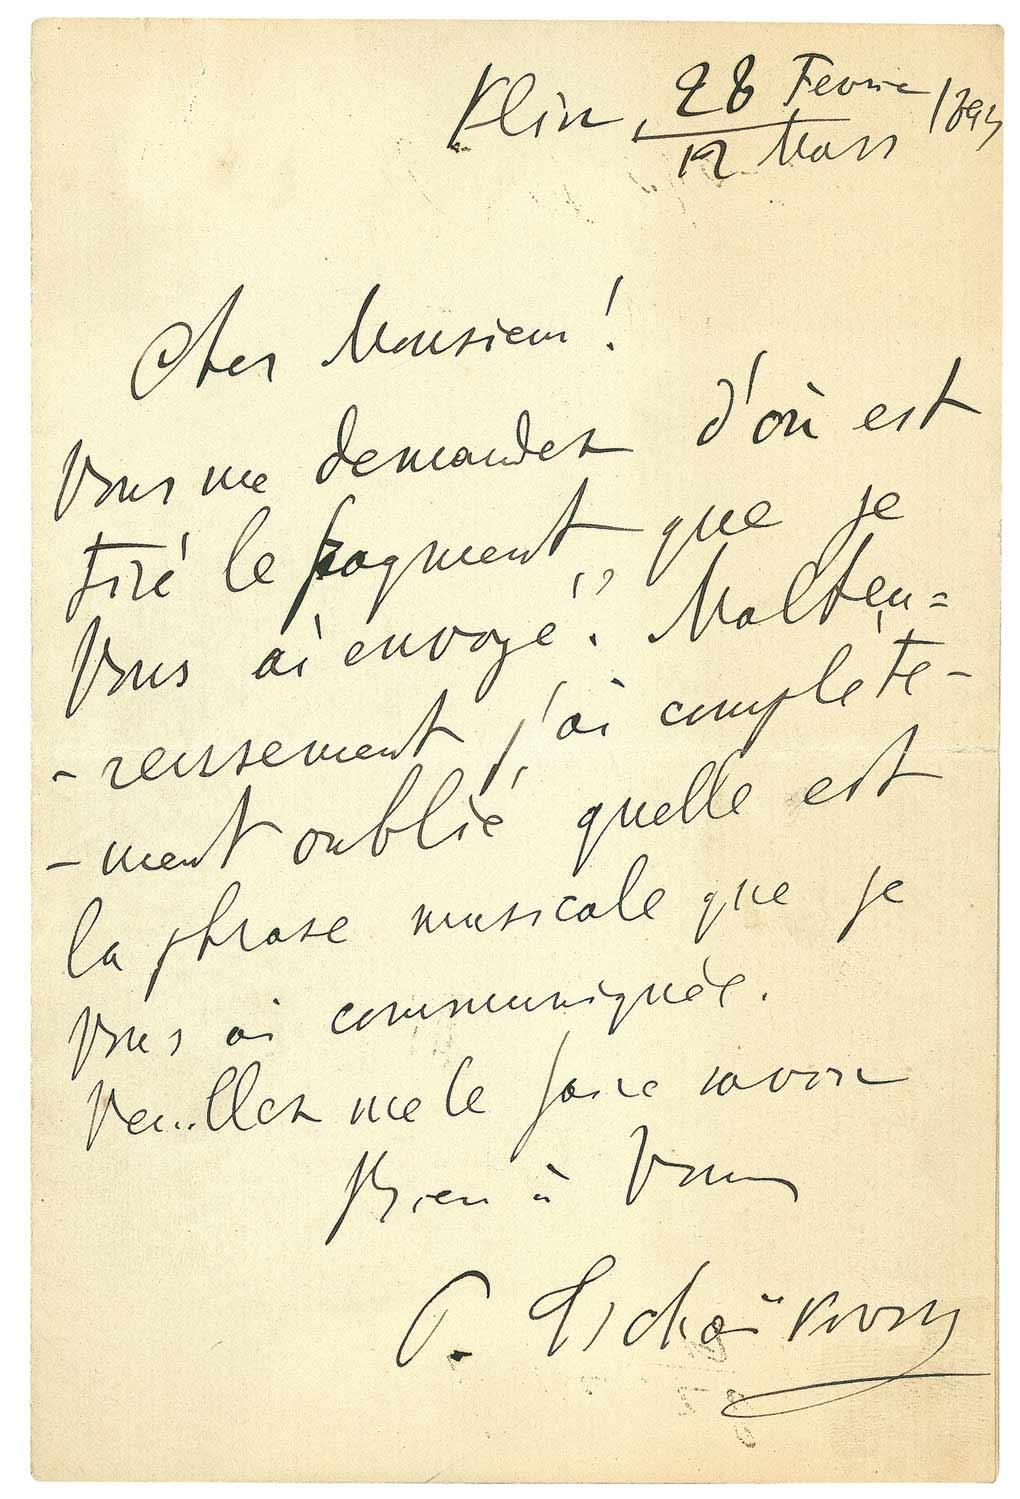 Klin, 28 Fevrier 1893
12 Mars
Cher Monsieur!
Vous me demandez d'où est
tiré le fragment, que je
Vous ai envoyé. Malheu=
-reusement j'ai complète-
-ment oublié quelle est
la phrase musicale que je
Vous ai communiquée.
Veuillez me le faire savoir
Bien à Vous
P. Tschaïkovsky